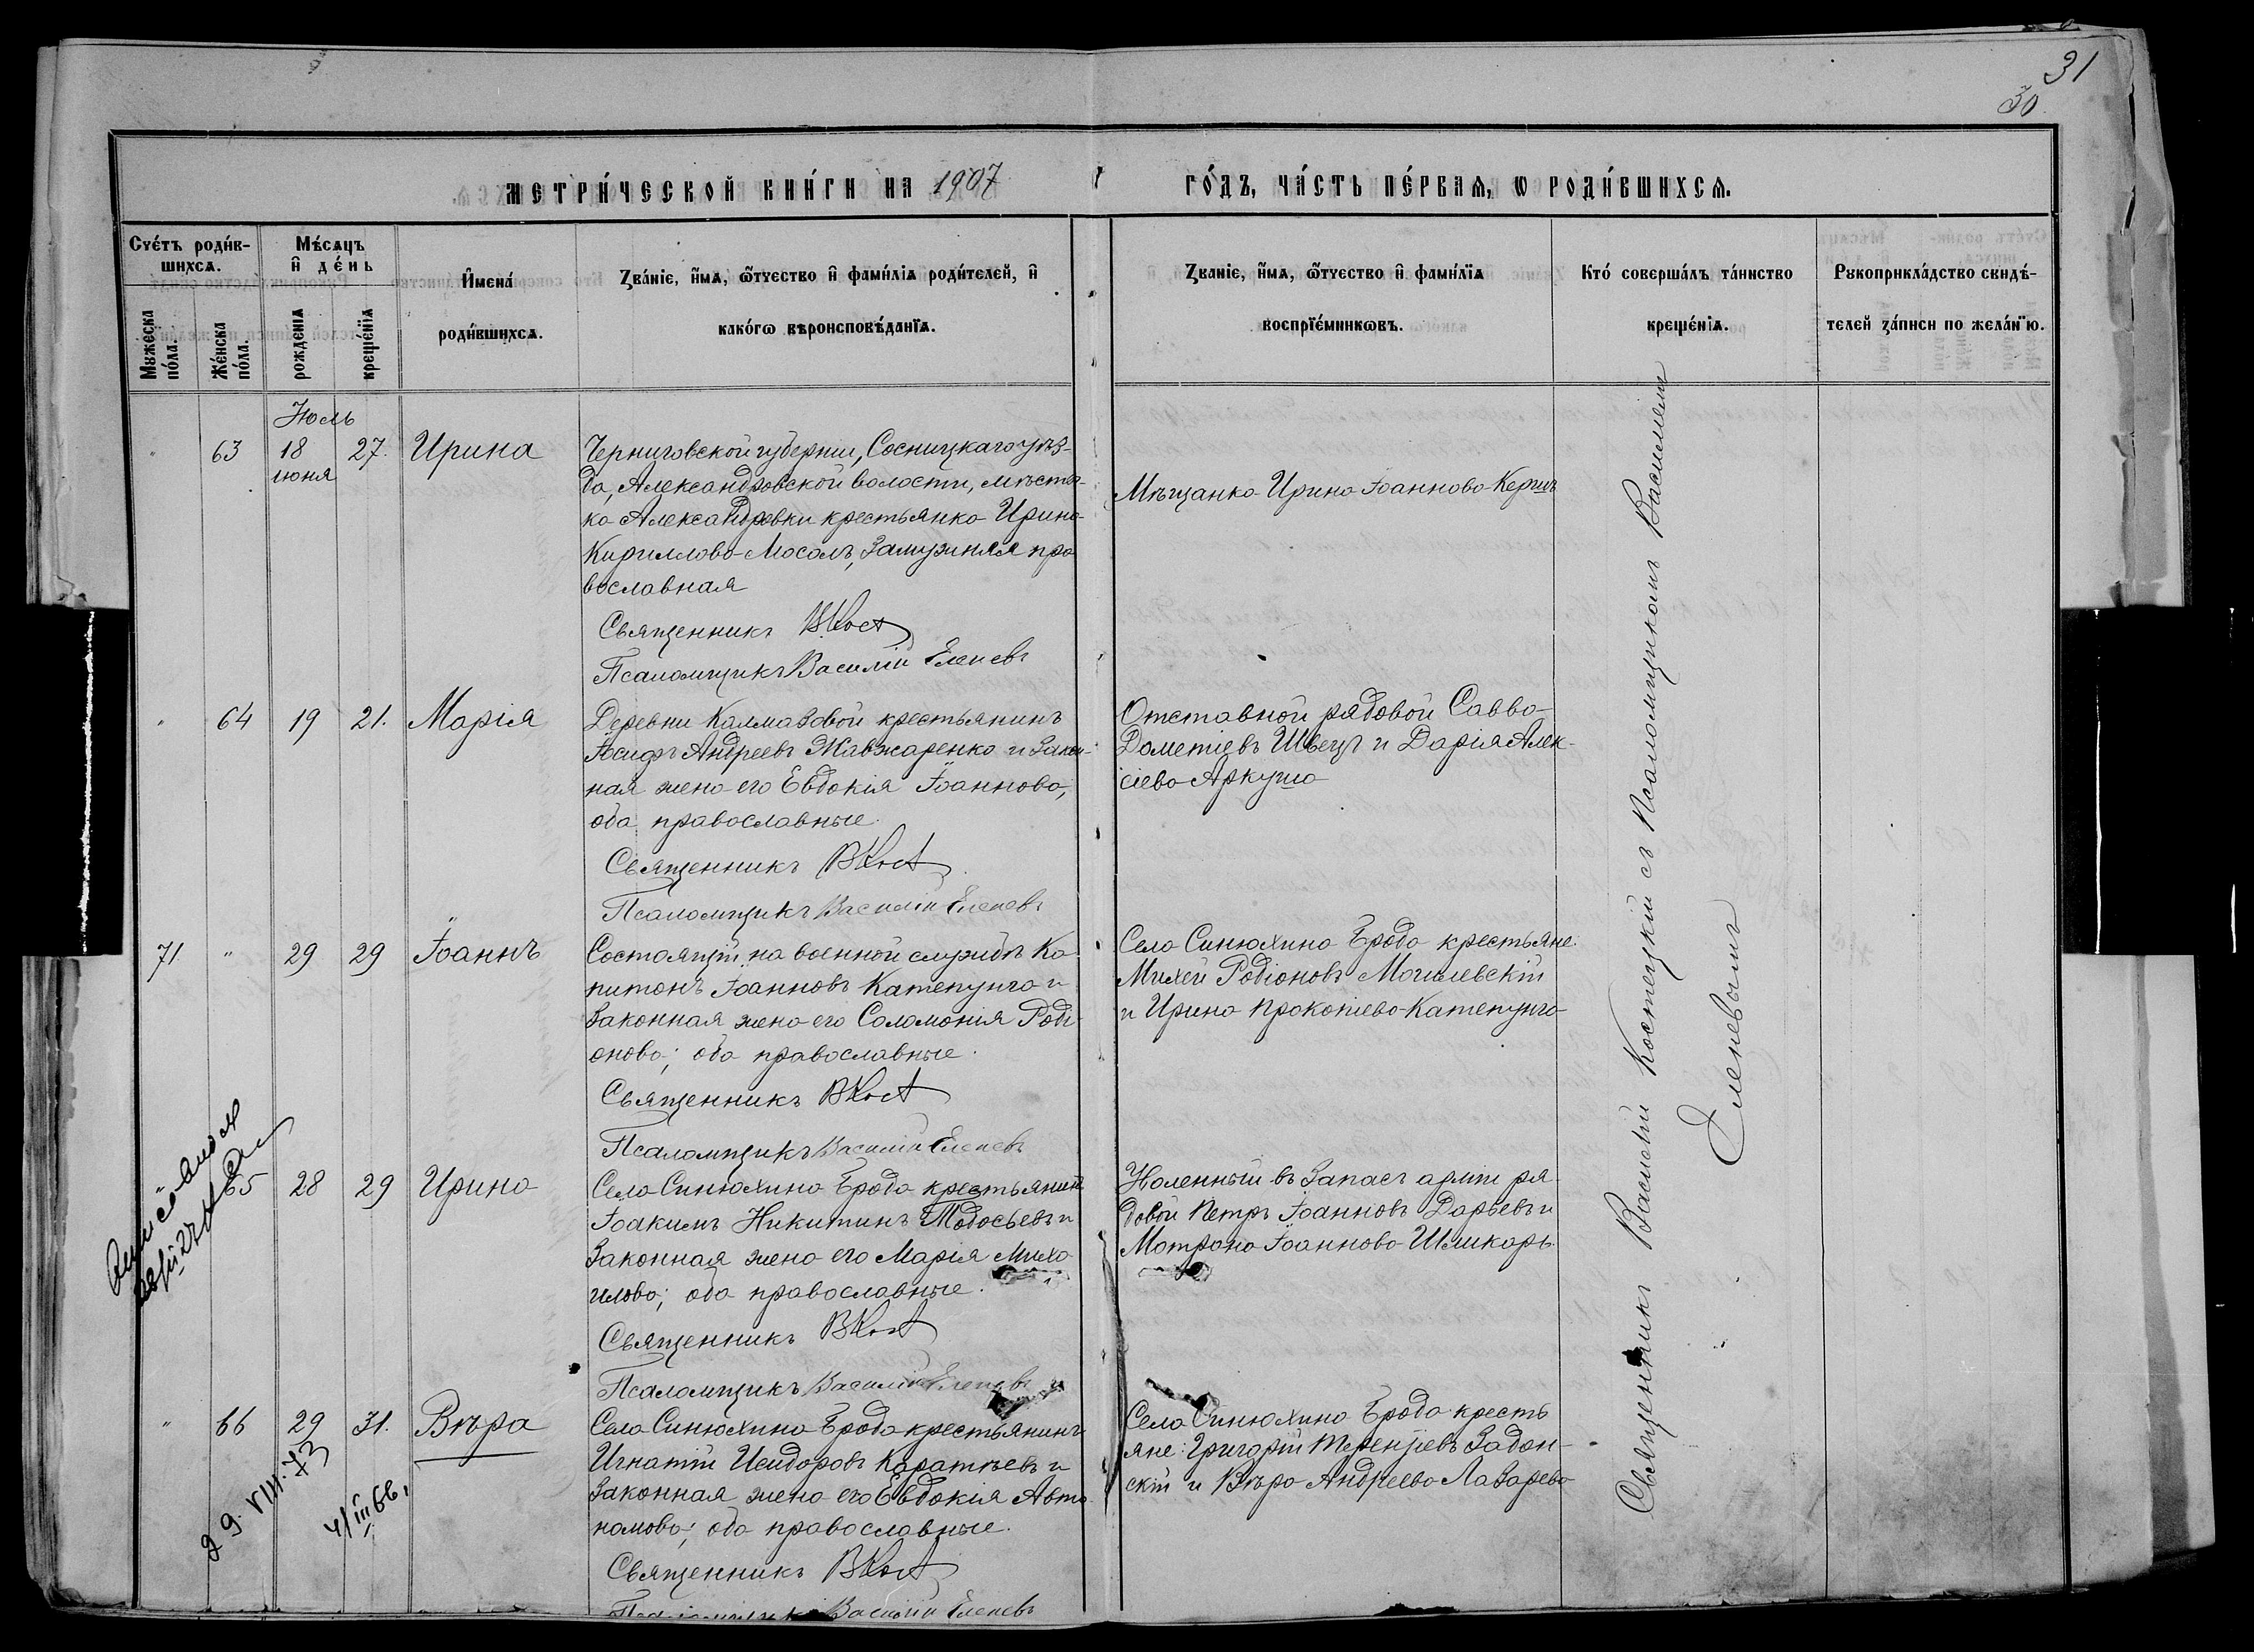 31
30
МЕТРИ́ЧЕСКОЙ КНИ́ГИ НА 1907 ГО́ДЪ, ЧА́СТЬ ПЕ́РВАѦ, Ѡ РОДИ́ВШИХСѦ.
Сче́тъ роди́в-
шихсѧ.
Мꙋжеска по́ла.
Же́нска по́ла.
Мѣ́сѧцъ
и҆ де́нь
рожденїѧ
креще́нїѧ
И҆мена́
роди́вшихсѧ.
Ꙁва́нїе, и҆́мѧ, ѻ҆́тчество и҆ фами́лїѧ роди́телей, и҆
како́гѡ вѣроисповѣ́данїѧ.
Ꙁванїе, и҆́мѧ, ѻ҆́тчество и҆ фами́лїѧ
воспрїе́мникѡвъ.
Кто́ соверша́лъ та́инство
креще́нїѧ.
Рꙋкоприкла́дство свидѣ́-
телей ꙁа́писи по жела́нїю.
Іюль
" 63 18 27. Ирина
июня
Черниговской губерніи, Сосницкаго уѣз-
да, Александровской волости, мѣстеч-
ка Александровки крестьянка Ирина
Кириллова Мосолъ, замужняя пра
вославная
Священникъ ВКост
Псаломщикъ Василій Еленевъ
Мѣщанка Ирина Іоаннова Кершъ
" 64 19 21. Марія
Деревни Калмазовой крестьянинъ
Іосифъ Андреевъ Жавжаренко и закон-
ная жена его Евдокія Іоаннова,
оба православные.
Священникъ ВКост
Псаломщикъ Василій Еленевъ
Отставной рядовой Савва
Дометіевъ Швецъ и Дарія Алек-
сіева Аркуша
71 " 29 29 Іоаннъ
Состоящій на военной службѣ Ка
питонъ Іоанновъ Катеринчо и
законная жена его Соломонія Роді
онова; оба православные.
Священникъ ВКост
Псаломщикъ Василій Еленевъ
Села Синюхина Брода крестьяне:
Михей Родіоновъ Могилевскій
и Ирина Прокопіева
65 28 29 Ирина
Села Синюхина Брода крестьянинъ
Іоакимъ Никитинъ и
законная жена его Марія Миха
илова; оба православные.
Священникъ ВКост
Псаломщикъ Василій Еленевъ
въ запасъ арміи ря
довой Петръ Іоанновъ Даръевъ и
Матрона Іоаннова Шликарь
" 66 29 31. Вѣра
Села Синюхина Брода крестьянинъ
Игнатій Исидоровъ Каратѣевъ и
законная жена его Евдокія Авто
номова; оба православные.
Священникъ ВКост
Псаломщикъ Василій Еленевъ
Села Синюхина Брода кресть
яне: Григорій Терентіевъ Задон-
скій и Вѣра Андреева Лазарева
29.VIII.73
4/III66,
Священникъ Василій Костецкій съ Псаломщикомъ Василіемъ
Еленевымъ